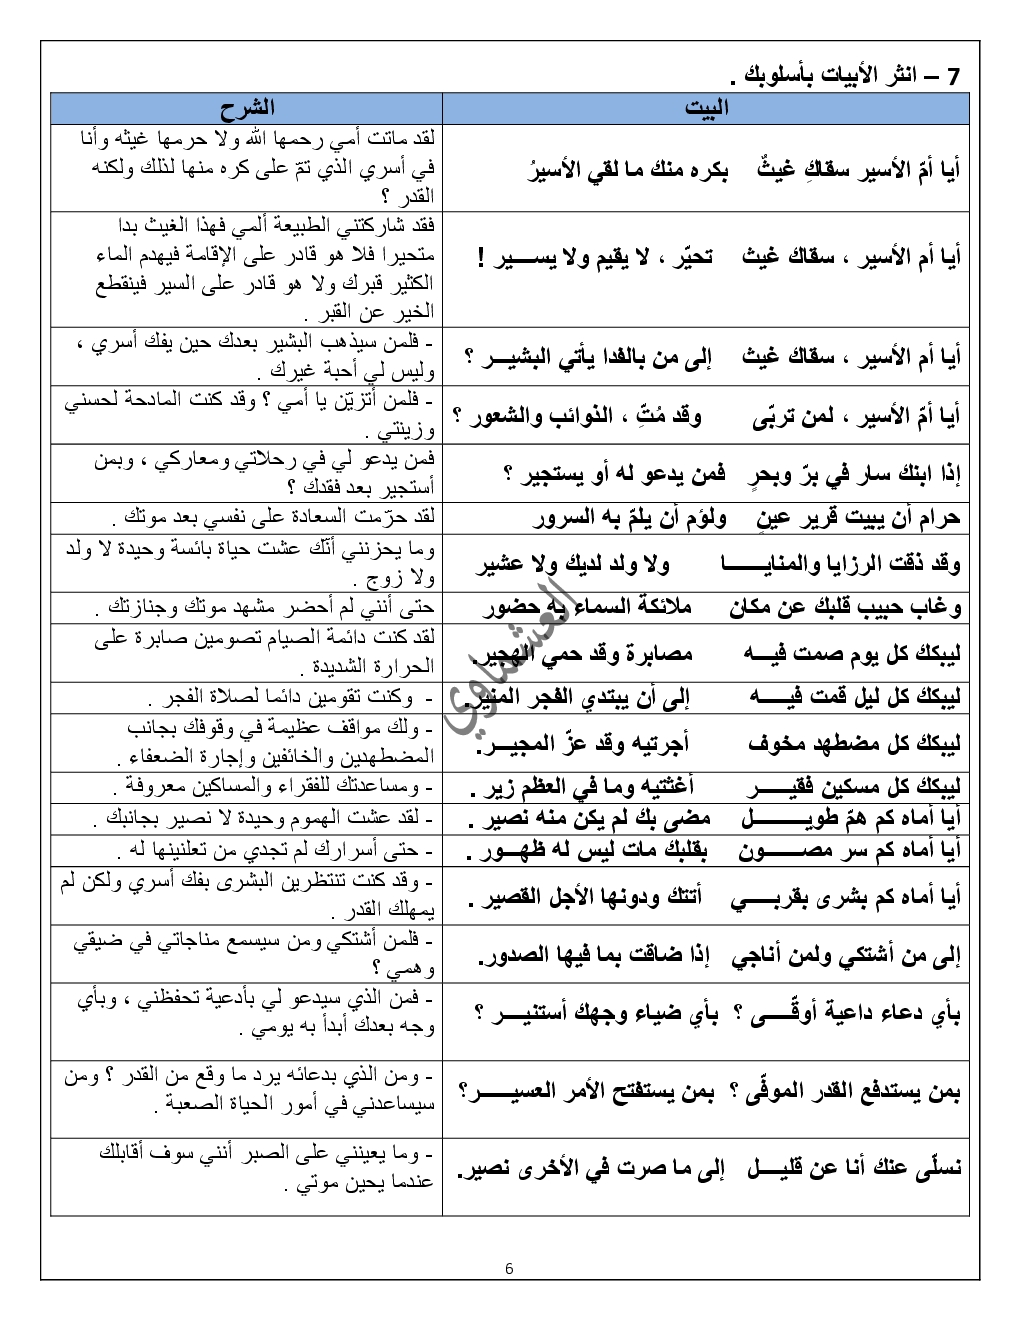 7 – انثر الأبيات بأسلوبك .
البيت
الشرح
أيا أمّ الأسير سقاكِ غيثٌ بكره منك ما لقي الأسيرُ
لقد ماتت أمي رحمها الله ولا حرمها غيثه وأنا
في أسري الذي تمّ على كره منها لذلك ولكنه
القدر ؟
أيا أم الأسير ، سقاك غيث تحيّر ، لا يقيم ولا يســـير !
فقد شاركتني الطبيعة ألمي فهذا الغيث بدا
متحيرا فلا هو قادر على الإقامة فيهدم الماء
الكثير قبرك ولا هو قادر على السير فينقطع
الخير عن القبر .
أيا أم الأسير ، سقاك غيث إلى من بالفدا يأتي البشيـــر ؟
- فلمن سيذهب البشير بعدك حين يفك أسري ،
وليس لي أحبة غيرك .
أيا أمّ الأسير ، لمن تربّى وقد مُتِّ ، الذوائب والشعور ؟
- فلمن أتزيّن يا أمي ؟ وقد كنت المادحة لحسني
وزينتي .
إذا ابنك سار في برّ وبحرٍ فمن يدعو له أو يستجير ؟
فمن يدعو لي في رحلاتي ومعاركي ، وبمن
أستجير بعد فقدك ؟
حرام أن يبيت قرير عينٍ ولؤم أن يلمّ به السرور
لقد حرّمت السعادة على نفسي بعد موتك .
وقد ذقت الرزايا والمنايـــــــا ولا ولد لديك ولا عشير
وما يحزنني أنّك عشت حياة بائسة وحيدة لا ولد
ولا زوج .
وغاب حبيب قلبك عن مكان ملائكة السماء به حضور
حتى أنني لم أحضر مشهد موتك وجنازتك .
ليبكك كل يوم صمت فيـــه مصابرة وقد حمي الهجير.
لقد كنت دائمة الصيام تصومين صابرة على
الحرارة الشديدة .
ليبكك كل ليل قمت فيــــه إلى أن يبتدي الفجر المنير.
- وكنت تقومين دائما لصلاة الفجر .
ليبكك كل مضطهد مخوف أجرتيه وقد عزّ المجيـــر.
- ولك مواقف عظيمة في وقوفك بجانب
المضطهدين والخائفين وإجارة الضعفاء .
ليبكك كل مسكين فقيـــــر أغثتيه وما في العظم زير .
- ومساعدتك للفقراء والمساكين معروفة .
أيا أماه كم همّ طويـــــــــل مضى بك لم يكن منه نصير .
- لقد عشت الهموم وحيدة لا نصير بجانبك .
أيا أماه كم سر مصـــــــون بقلبك مات ليس له ظهـــور .
- حتى أسرارك لم تجدي من تعلنينها له .
أيا أماه كم بشرى بقربـــــي أتتك ودونها الأجل القصير .
- وقد كنت تنتظرين البشرى بفك أسري ولكن لم
يمهلك القدر .
إلى من أشتكي ولمن أناجي إذا ضاقت بما فيها الصدور.
- فلمن أشتكي ومن سيسمع مناجاتي في ضيقي
وهمي ؟
بأي دعاء داعية أوقّــــى ؟ بأي ضياء وجهك أستنيـــر ؟
- فمن الذي سيدعو لي بأدعية تحفظني ، وبأي
وجه بعدك أبدأ به يومي .
بمن يستدفع القدر الموفّى ؟ بمن يستفتح الأمر العسيـــــر؟
- ومن الذي بدعائه يرد ما وقع من القدر ؟ ومن
سيساعدني في أمور الحياة الصعبة .
نسلّى عنك أنا عن قليـــل إلى ما صرت في الأخرى نصير.
- وما يعينني على الصبر أنني سوف أقابلك
عندما يحين موتي .
العشماوي
6